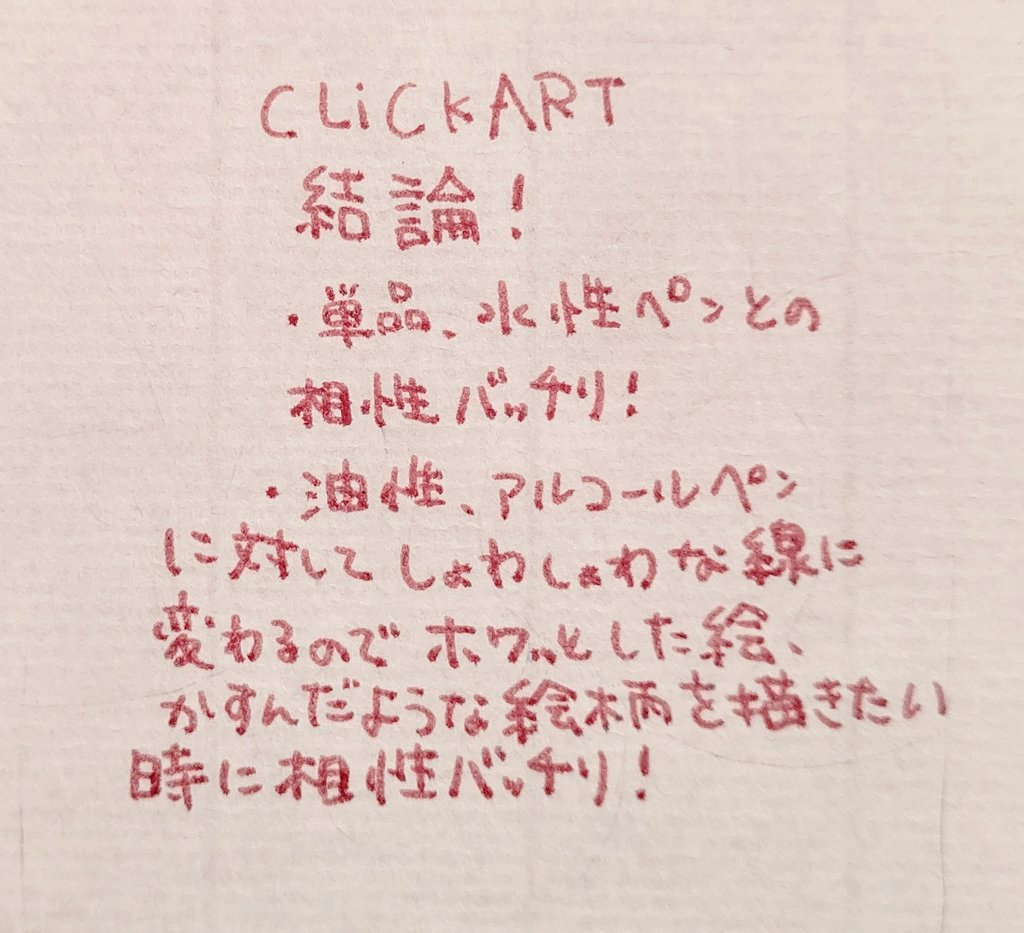 CLiCKART
結論!
・単品、水性ペンとの
相性バッチリ!
・油性、アルコールペン
に対してしょわしょわな線に
変わるのでホワッとした絵、
かすんだような絵柄を描きたい
時に相性バッチリ!